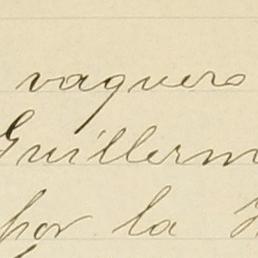 vaquero
Guillerm
por la